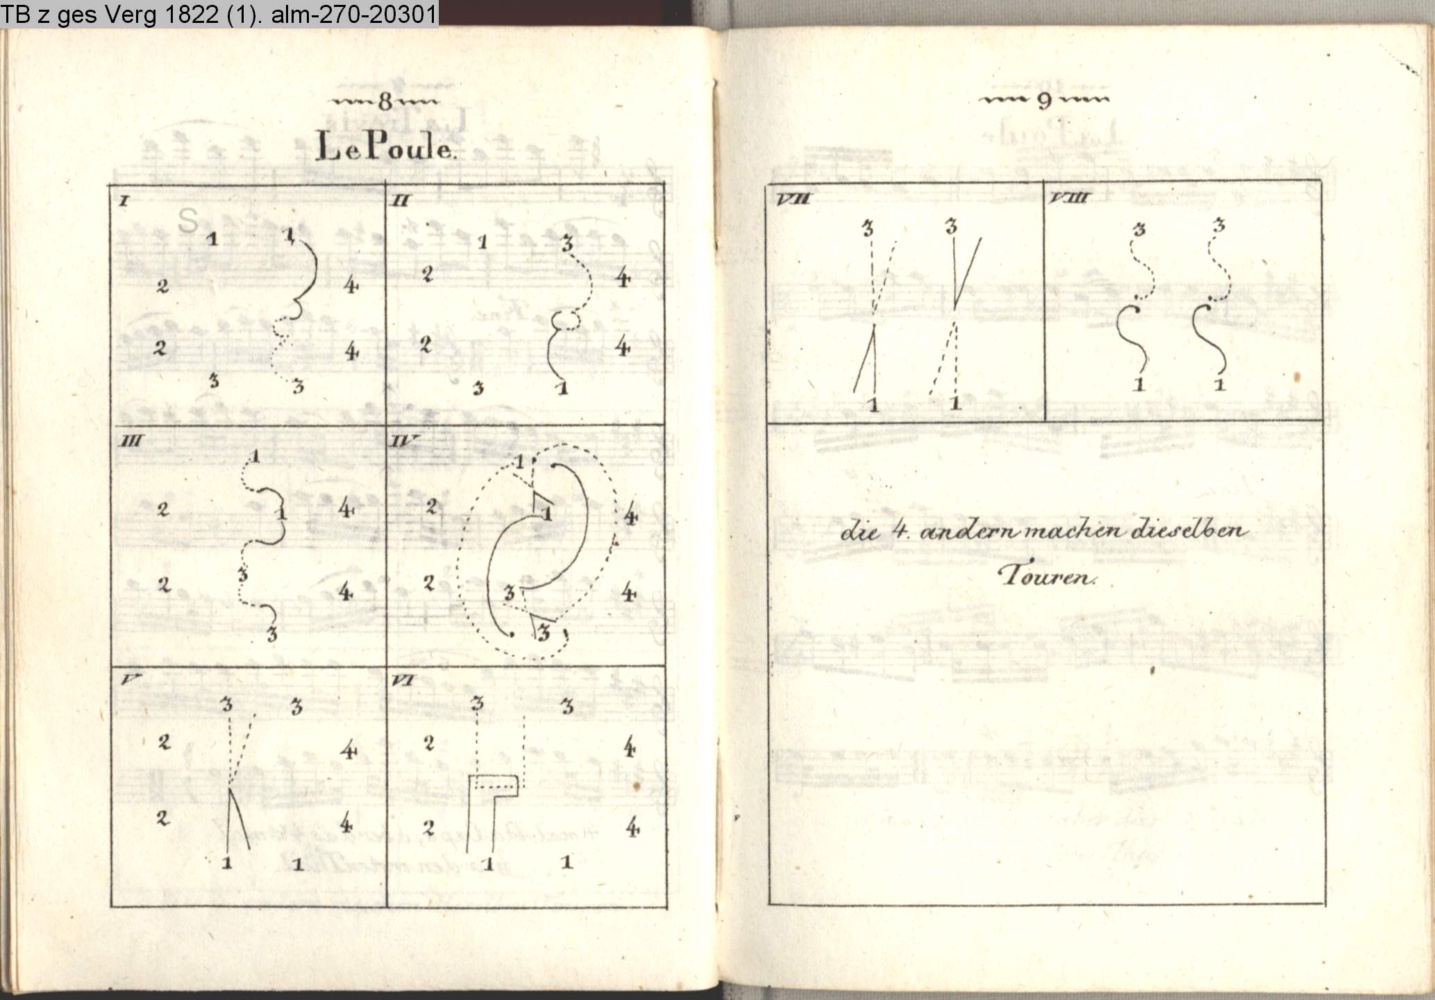 TB z ges Verg 1822 (1). alm-270-20301
8
Le Poule.
I
S
1 1
2 4
2 4
3 3
II
1 3
2 4
2 4
3 1
III
1
2 1 4
3
2 4
3
IV
1
2 1 4
2 3 4
3
V
3 3
2 4
2 4
1 1
VI
3 3
2 4
2 4
1 1
9
VII
3 3
1 1
VIII
3 3
1 1
die 4. andern machen dieselben
Touren.